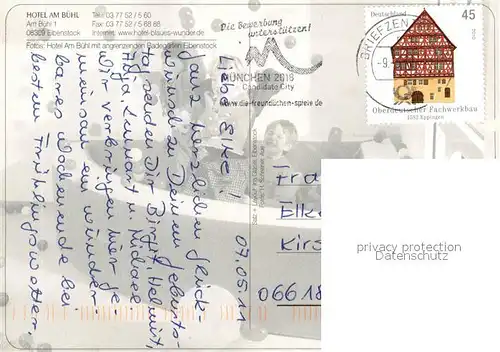 HOTEL AM BÜHL
Am Bühl 1
08309 Eibenstock
Telefon 03 77 52 / 5 60
Fax 03 77 52 / 5 68 88
Internet: www.hotel-blaues-wunder.de
Fotos: Hotel Am Bühl mit angrenzenden Badegärten Eibenstock
Die Bewerbung
unterstützen!
MÜNCHEN 2018
Candidate City
www.die-freundlichen-spiele.de
BRIEFZEN
Deutschland
45
Oberdeutscher Fachwerkbau
1582 Eppingen
07.05.11
Liebe Elke!
Ganz herzlichen Glück-
wunsch zu Deinem Geburts-
tag senden Dir Birgit, Helmut,
Anja, Lennart u. Nicole
Wir verbringen hier ge-
meinsam ein wunder-
bares Wochenende bei
bestem Frühlingswetter.
Fra
Elk
Kirs
06618
privacy protection
Datenschutz